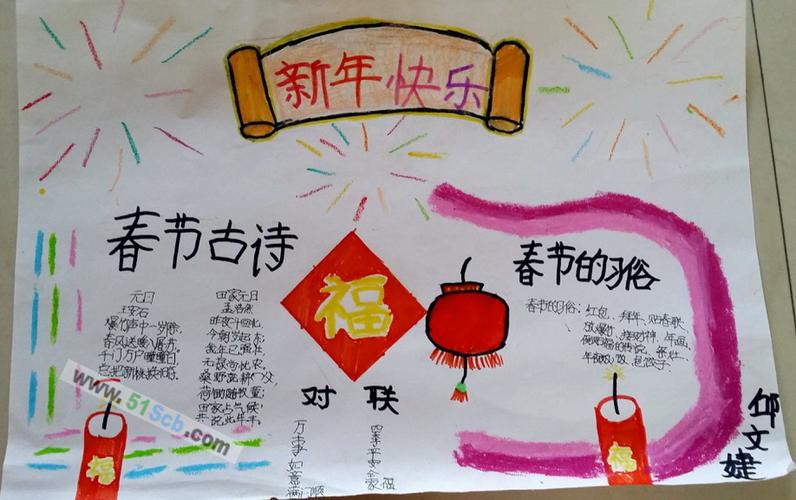 新年快乐
春节古诗
元日
王安石
爆竹声中一岁除,
春风送暖入屠苏。
千门万户曈曈日,
总把新桃换旧符。
田家元日
孟浩然
昨夜斗回北,
今朝岁起东;
我年已强仕,
无禄尚忧农。
桑野就耕父,
荷锄随牧童;
田家占气候,
共说此年丰。
福
对联
万事如意
四季平安合家福
春节的习俗
春节的习俗:红包、拜年、贴春联、
放爆竹、接财神、年画、
祭灶、
福
福
邱文婕
www.51Scb.com